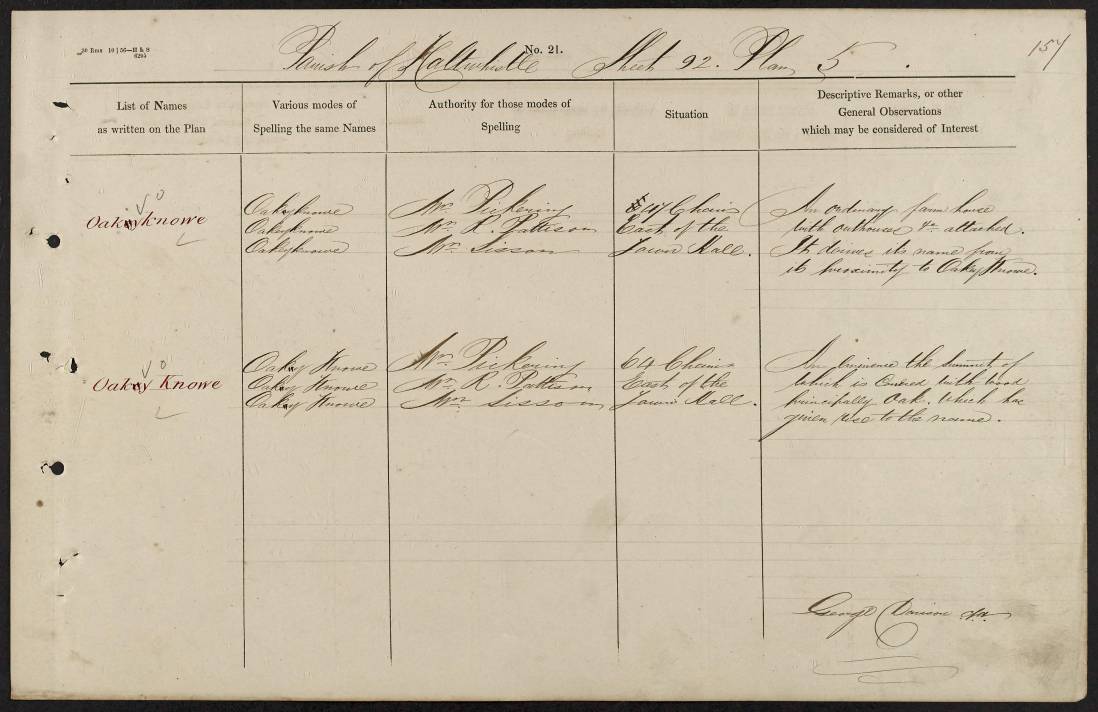 30 Rms 10 | 56—H & S
6295
No. 21.
Parish of Haltwhistle Sheet 92. Plan 5.
154
List of Names
as written on the Plan
Various modes of
Spelling the same Names
Authority for those modes of
Spelling
Situation
Descriptive Remarks, or other
General Observations
which may be considered of Interest
Oakyknowe
Oakyknowe
Oakeyknowe
Oakeyknowe
Mr. Pickering
Mr. R. Pattison
Mr. Sisson
47 Chains
East of the
Town Hall.
An ordinary farm house
with outhouses &c. attached.
It derives its name from
its proximity to Oakey Knowe.
Oaky Knowe
Oaky Knowe
Oaky Knowe
Oaky Knowe
Mr. Pickering
Mr. R. Pattison
Mr. Sisson
64 Chains
East of the
Town Hall.
An Eminence the Summit of
which is Covered with wood
principally Oak. Which has
given rise to the name.
George